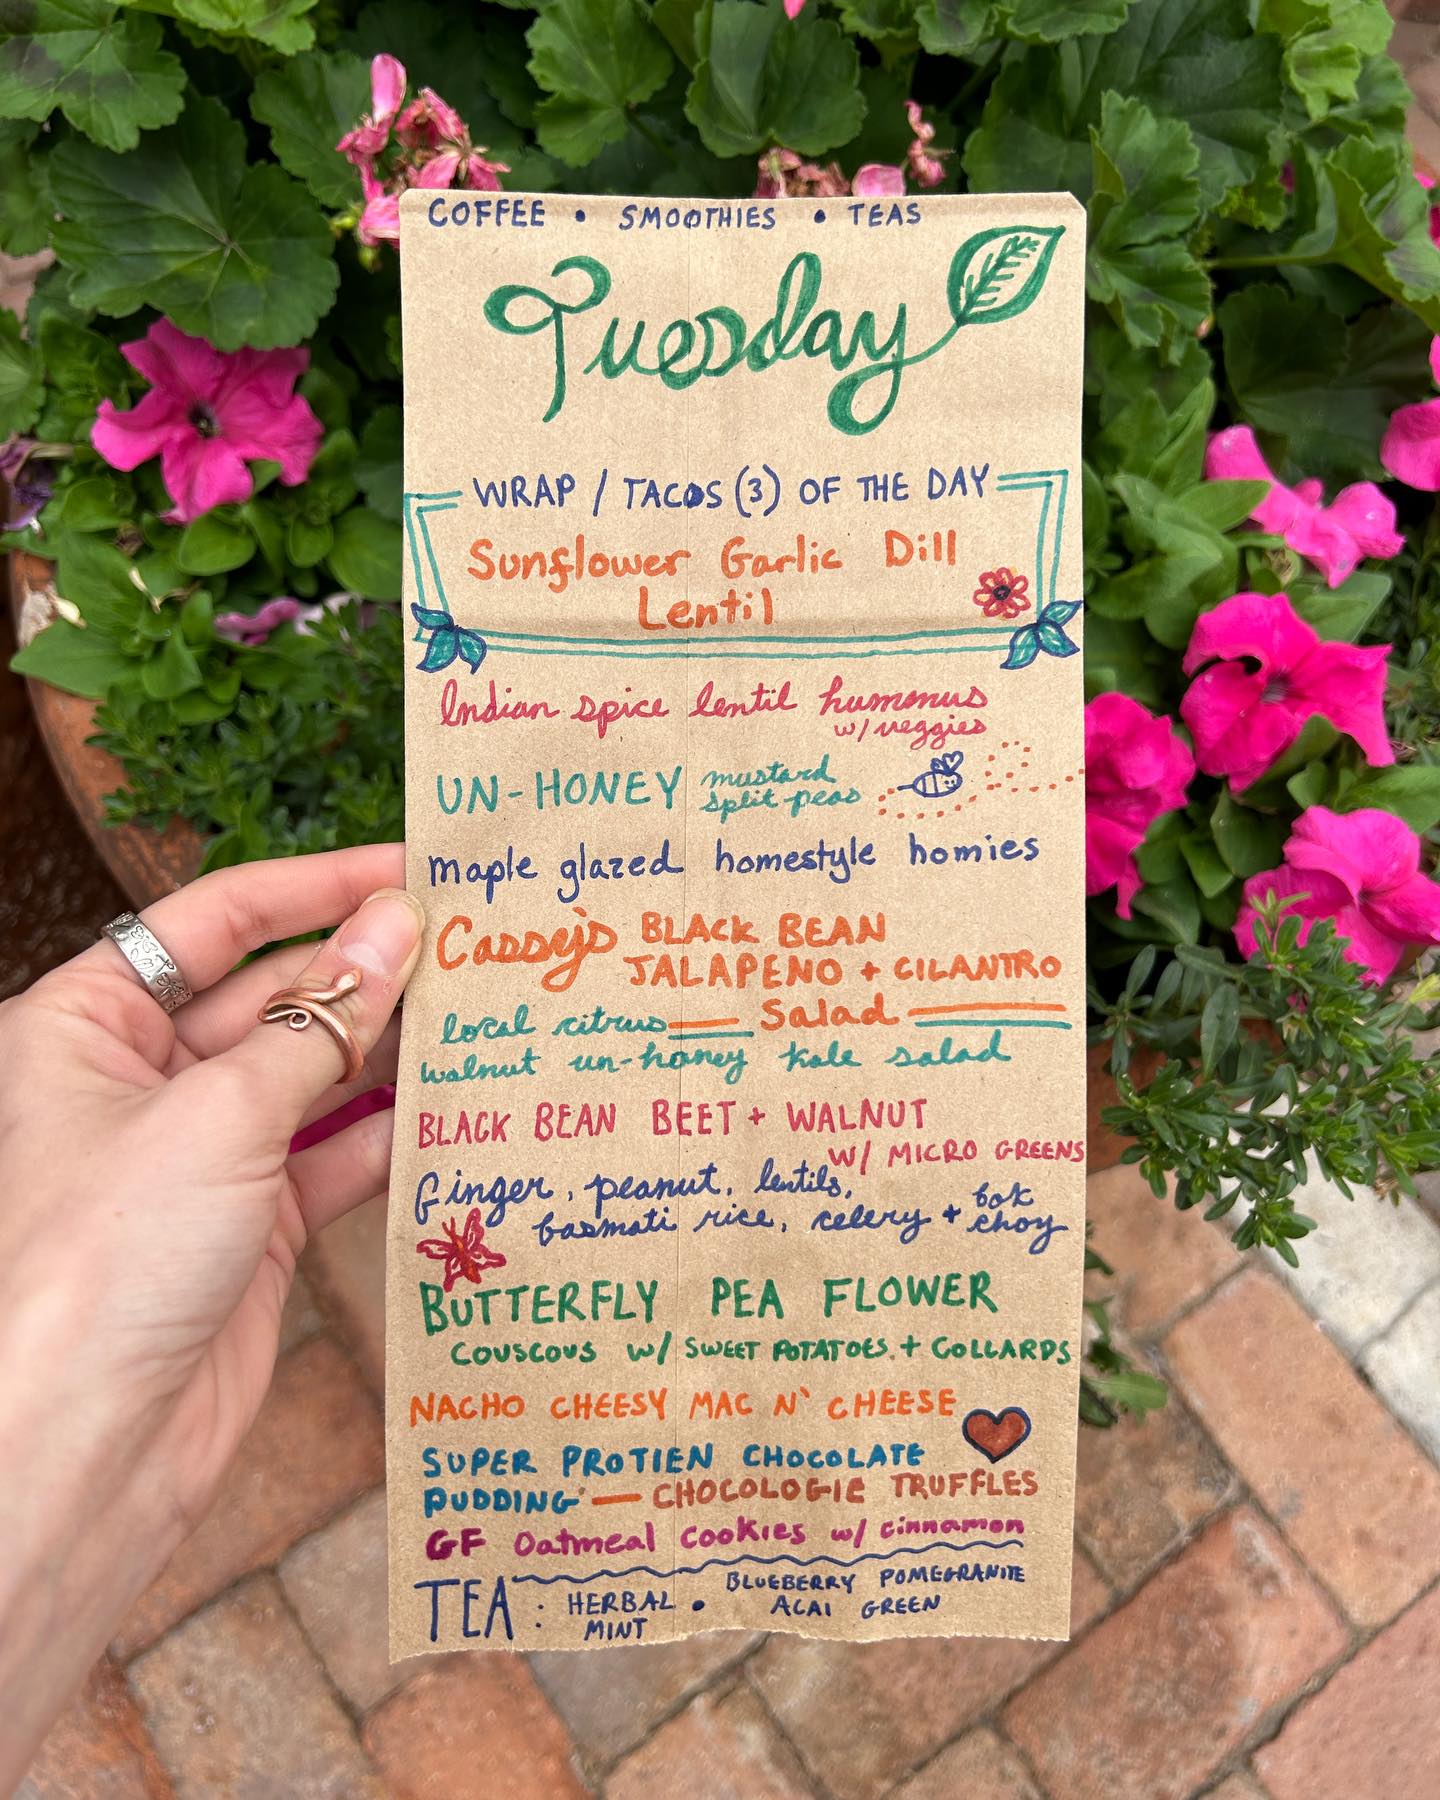 COFFEE • SMOOTHIES • TEAS
Tuesday
WRAP / TACOS (3) OF THE DAY
Sunflower Garlic Dill
Lentil
Indian spice lentil hummus
w/ veggies
UN-HONEY mustard
split-peas
maple glazed homestyle homies
Cassy's BLACK BEAN
JALAPENO + CILANTRO
Salad
local citrus
walnut un-honey kale salad
BLACK BEAN BEET + WALNUT
W/ MICRO GREENS
Ginger, peanut, lentils,
basmati rice, celery + bok
choy
BUTTERFLY PEA FLOWER
COUSCOUS W/ SWEET POTATOES + COLLARDS
NACHO CHEESY MAC N' CHEESE
SUPER PROTIEN CHOCOLATE
PUDDING — CHOCOLOGIE TRUFFLES
GF Oatmeal cookies w/ cinnamon
TEA: HERBAL • BLUEBERRY POMEGRANITE
MINT ACAI GREEN